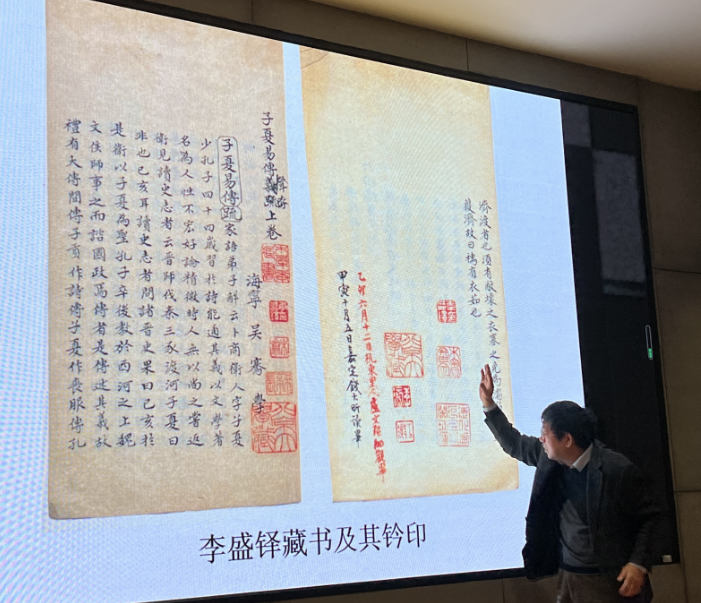 子夏易傳義疏上卷
海寧 吳騫 學
子夏易傳疏家語弟子解云卜商衛人字子夏
少孔子四十四歲習於詩能通其義以文學著
名為人性不宏好論精微時人無以尚之嘗返
衛見讀史志者云晉師伐秦三豕渡河子夏曰
非也己亥耳讀史志者問諸晉史果曰己亥於
是衛以子夏為聖孔子卒後教於西河之上魏
文侯師事之而諮國政焉傳者是傳述其義故
禮有大傳間傳子貢作詩傳子夏作喪服傳孔
濟渡者也須有敝壞之衣塞之
濟故曰繻有衣袽也
乙卯六月十二日杭東里人盧文弨細觀畢
甲寅十月五日嘉定錢大昕讀畢
李盛铎藏书及其钤印